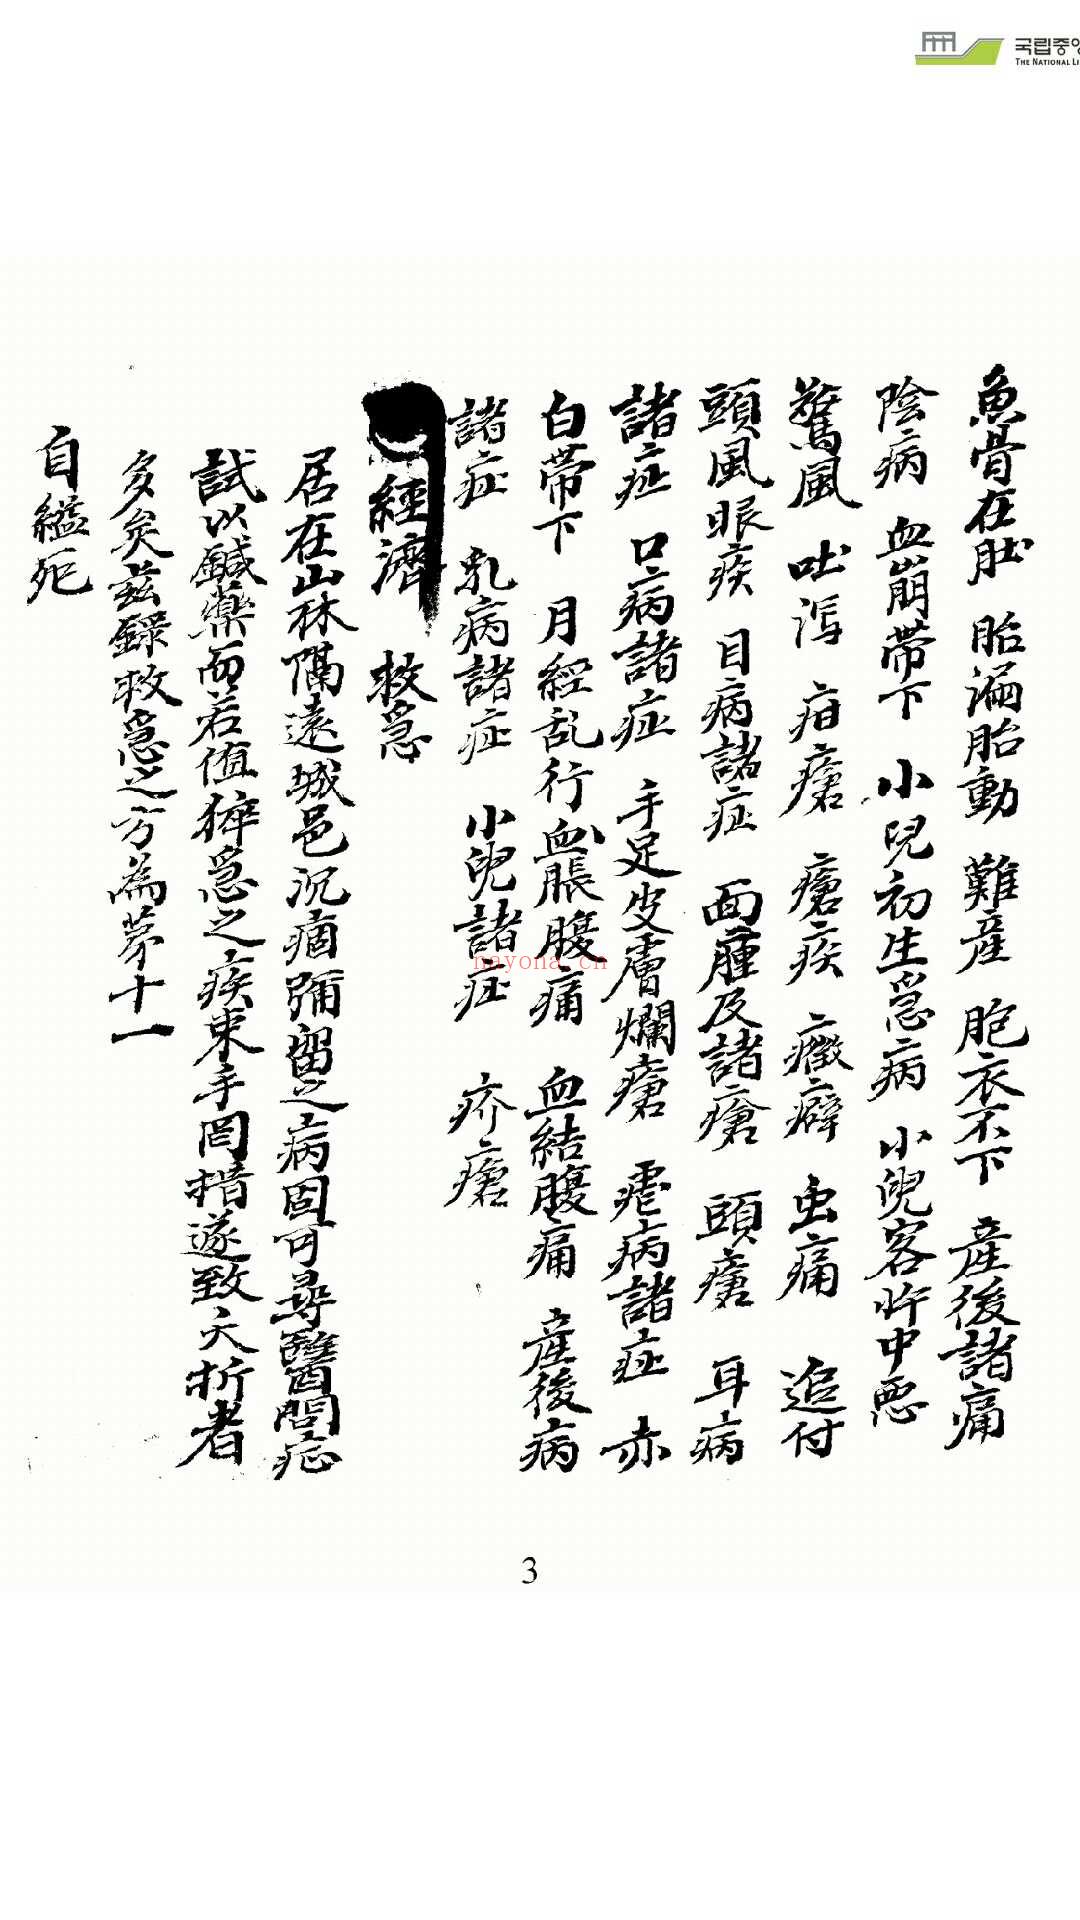 국립중앙
THE NATIONAL LI
魚骨在肚 胎漏胎動 難産 胞衣不下 産後諸痛
陰病 血崩帶下 小兒初生急病 小兒客忤中惡
驚風 吐瀉 疳瘡 瘡疾 癥癖 虫痛 追付
頭風眼疾 目病諸症 面腫及諸瘡 頭瘡 耳病
諸症 口病諸症 手足皮膚爛瘡 瘧病諸症 赤
白帶下 月經乱行血脹腹痛 血結腹痛 産後病
諸症 乳病諸症 小兒諸症 疥瘡
經濟 救急
居在山林隔遠城邑沉痼彌留之病固可尋醫問症
試以鍼藥而若值猝急之疾束手罔措遂致夭折者
多矣玆錄救急之方為第十一
自縊死
nayona.cn
3